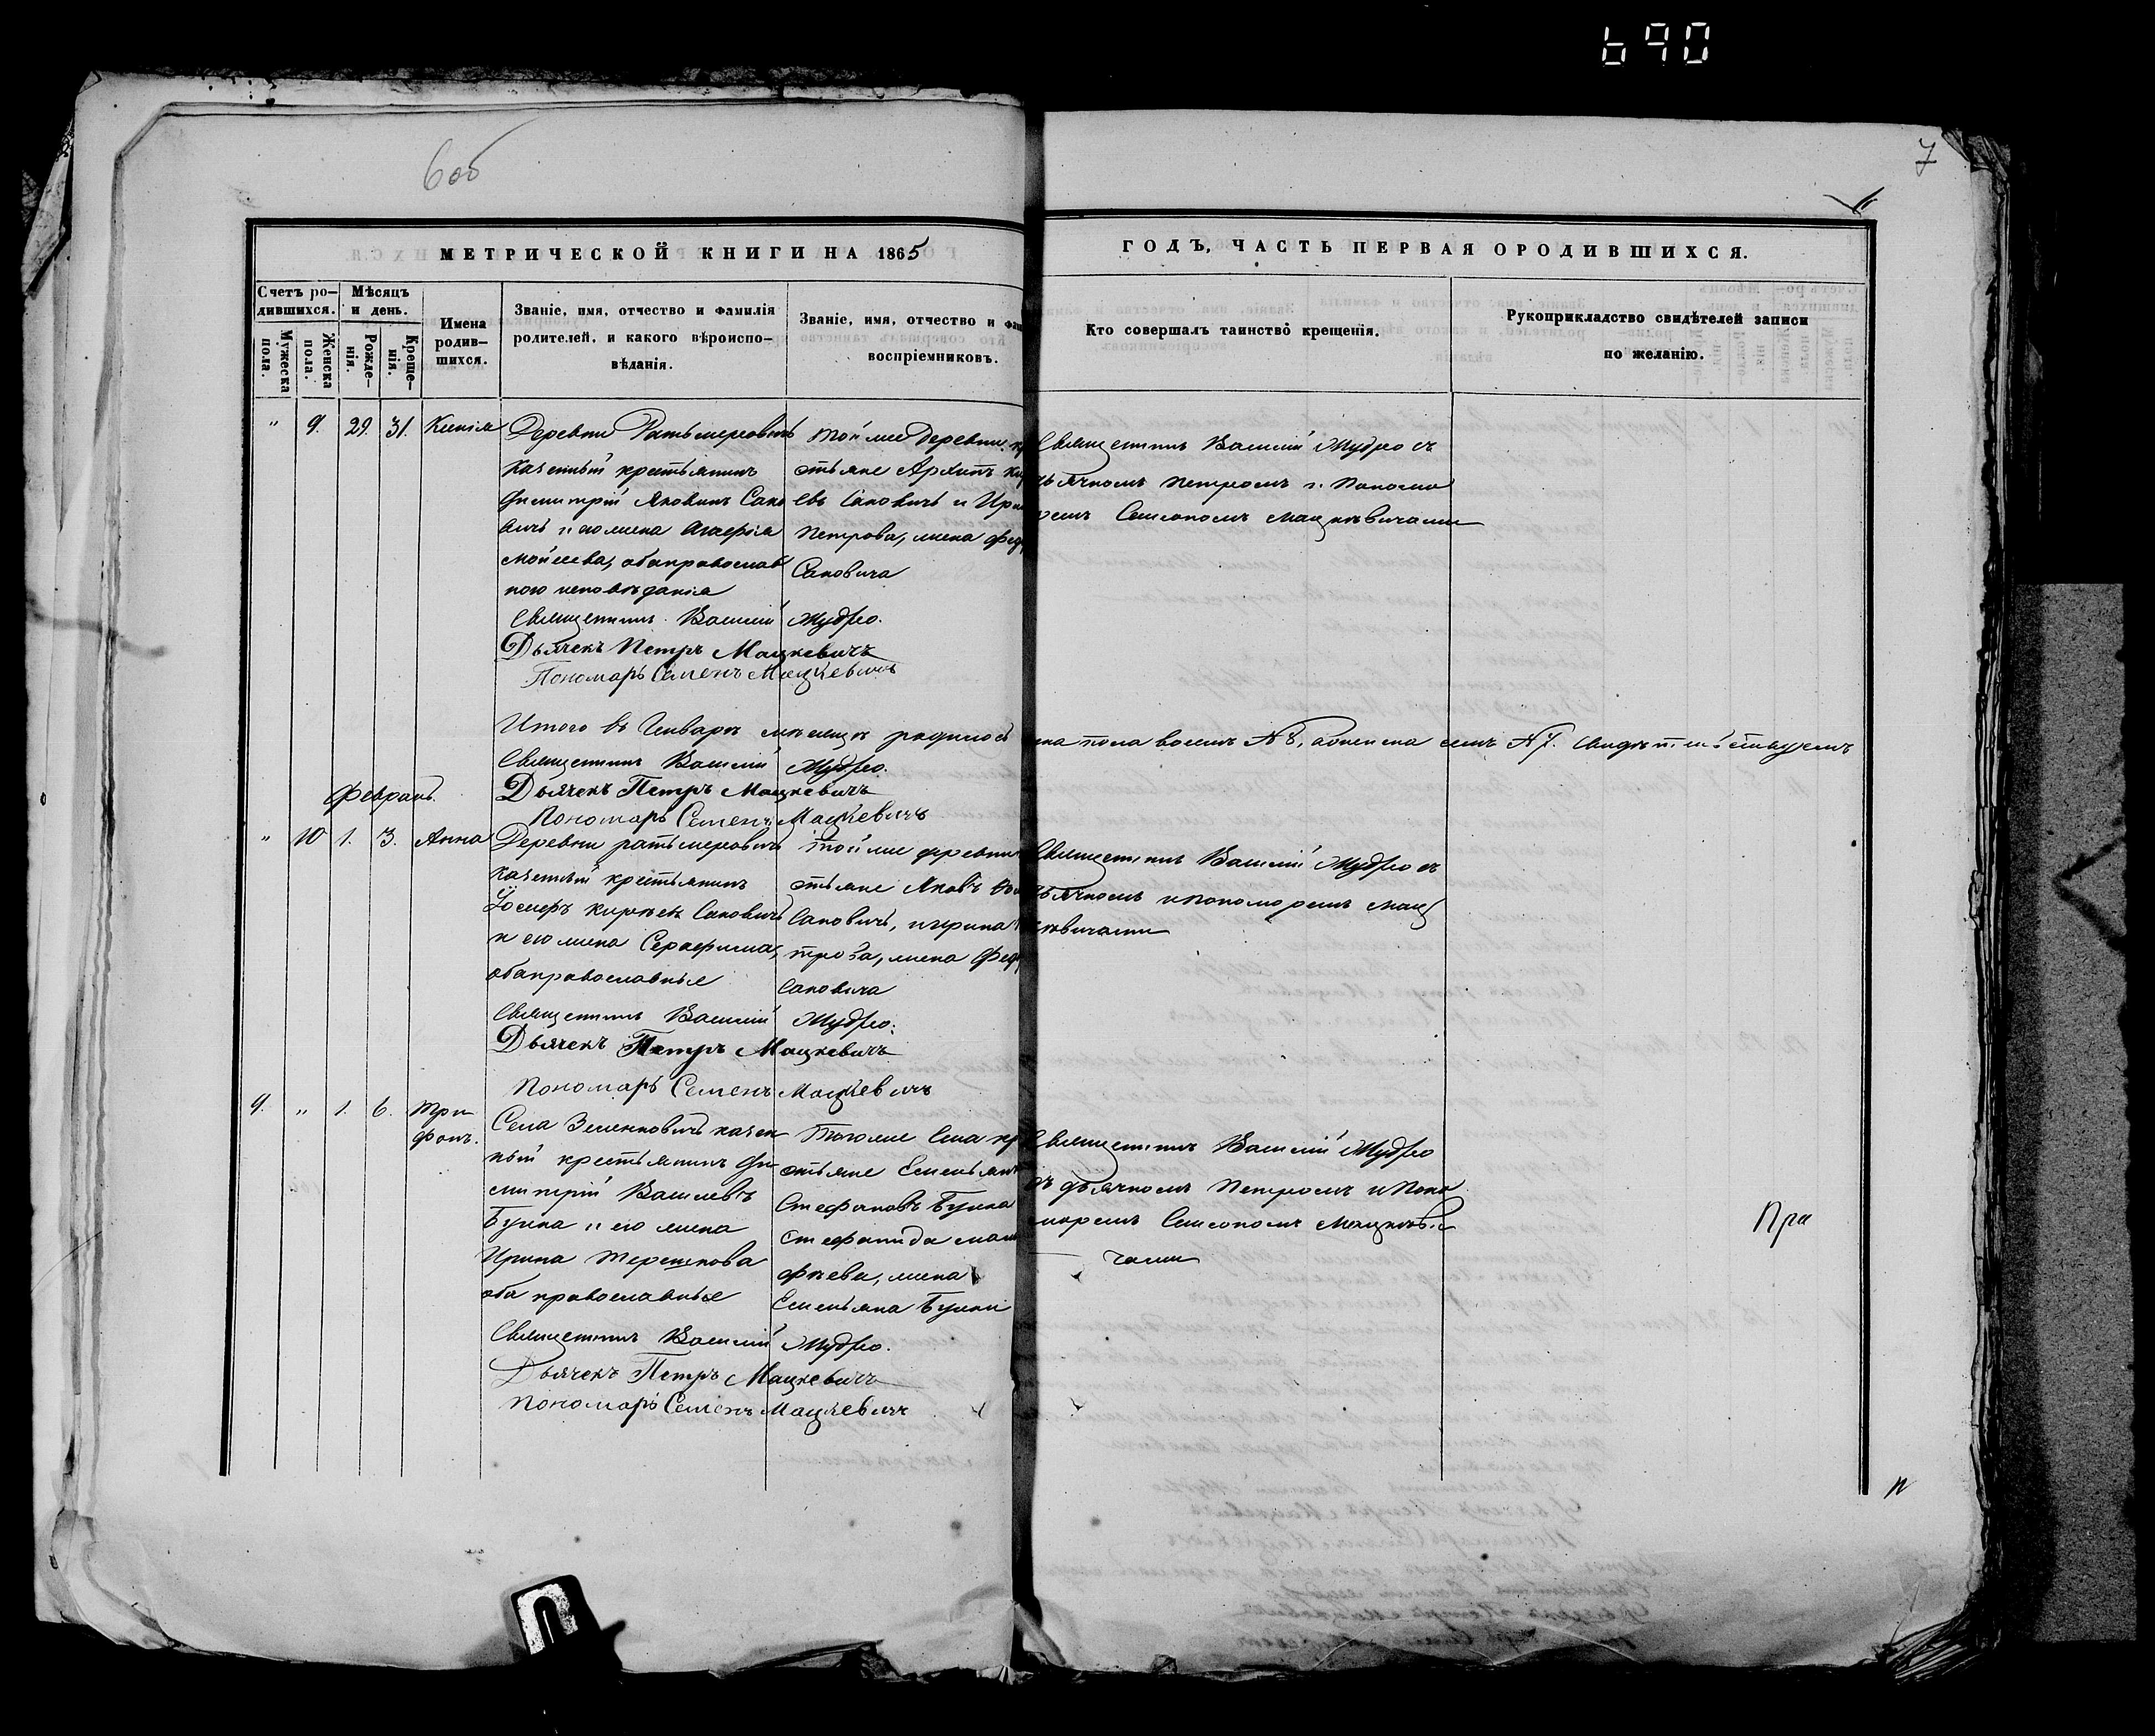 690
6об
7
МЕТРИЧЕСКОЙ КНИГИ НА 1865
ГОДЪ, ЧАСТЬ ПЕРВАЯ О РОДИВШИХСЯ.
Счетъ ро–
дившихся.
Мѣсяцъ
и день.
Мужеска
пола.
Женска
пола.
Рожде–
нія.
Креще–
нія.
Имена
родив–
шихся.
Званіе, имя, отчество и фамилія
родителей, и какого вѣроиспо–
вѣданія.
Званіе, имя, отчество и фам
воспріемниковъ.
Кто совершалъ таинство крещенія.
Рукоприкладство свидѣтелей записи
по желанію.
" 9. 29. 31. Ксенія
Деревни Ратьмеровичъ
казенный крестьянинъ
Димитрій Яковинъ Сако
вичъ и его жена Агафія
Мойсеева, оба православ
ного исповѣданія
Священникъ Василій Мудро.
Дьячекъ Петръ Мацкевичъ
Пономарь Семенъ Мацкевичъ
той же деревни кр
стьяне Архипъ Кир
евъ Саковичъ и Ири
Петрова, жена Фед
Саковича
Священникъ Василій Мудро съ
дьячкомъ Петромъ и Понома
ремъ Симеономъ Мацкевичами
Итого въ Январѣ мѣсяцѣ родилось
ска пола восемь № 8, а женска семь № 7. Свидѣтельствуемъ
Священникъ Василій Мудро.
Дьячекъ Петръ Мацкевичъ
Пономарь Семенъ Мацкевичъ
Февраль.
" 10 1. 3. Анна
Деревни Ратьмеровичъ
казенный крестьянинъ
Киріевъ Саковичъ
и его жена Серафима,
оба православные
Священникъ Василій Мудро.
Дьячекъ Петръ Мацкевичъ
Пономарь Семенъ Мацкевичъ
той же деревни
стьяне Яковъ
Саковичъ, и Ирина
трова, жена Фед
Саковича
Священникъ Василій Мудро съ
дьячкомъ и пономаремъ Мац
кевичами
9. " 1. 6. Три
фонъ.
Села Зеленковичъ казен
ный крестьянинъ Ди
митрій Василевъ
Булка и его жена
Ирина Терешкова
оба православные
Священникъ Василій Мудро.
Дьячекъ Петръ Мацкевичъ
Пономарь Семенъ Мацкевичъ
Того же Села кр
стьяне Емельянъ
Стефановъ Булка
Стефанида Мат
фѣева, жена
Емельяна Булки
Священникъ Василій Мудро
съ дьячкомъ Петромъ и Поно
маремъ Симеономъ Мацкеви
чами
Пра